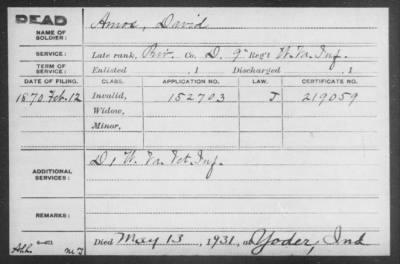 DEAD
NAME OF SOLDIER: Amos, David
SERVICE: Late rank, Priv. Co. D, 9" Reg't W. Va. Inf.
TERM OF SERVICE: Enlisted , 1 Discharged , 1
DATE OF FILING. CLASS. APPLICATION NO. LAW. CERTIFICATE NO.
1870 Feb. 12 Invalid, 152703 219059
Widow,
Minor,
ADDITIONAL SERVICES: D, 1 W. Va. Vet. Inf.
REMARKS:
Died May 13, 1931, at Yoder, Ind